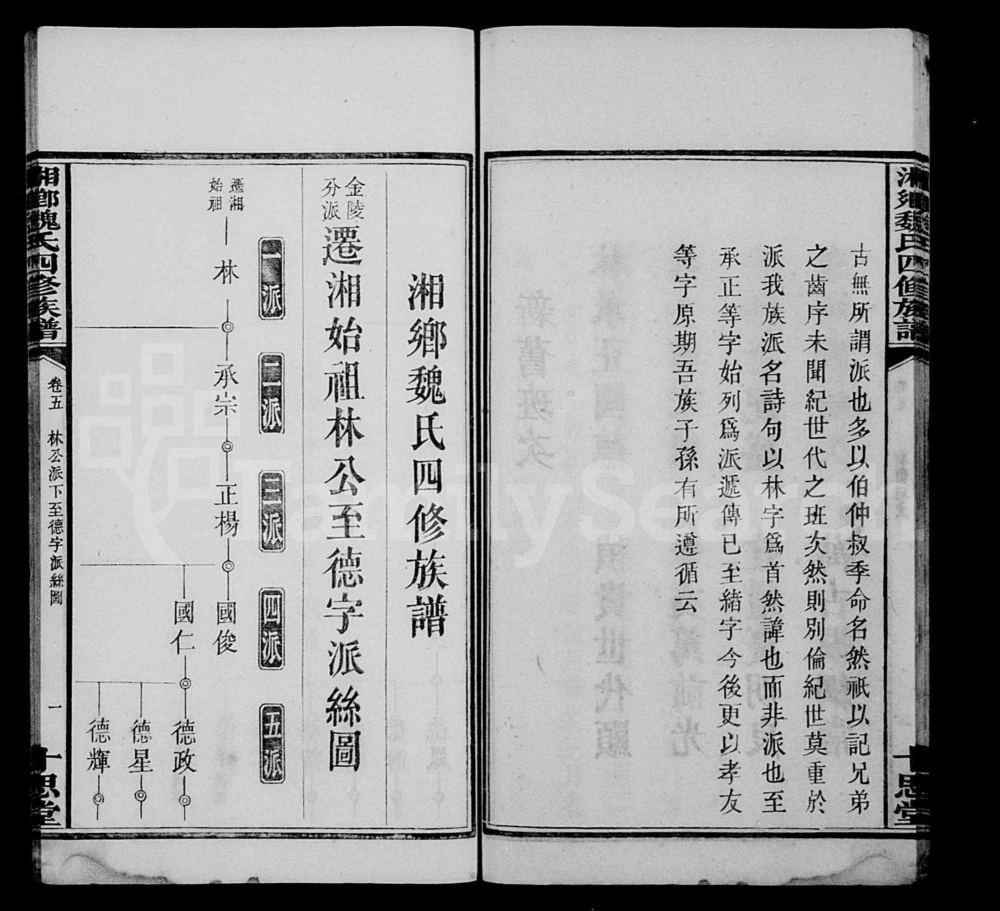 湘鄉魏氏四修族譜
十思堂
古無所謂派也多以伯仲叔季命名然祇以記兄弟
之齒序未聞紀世代之班次然則別倫紀世莫重於
派我族派名詩句以林字爲首然諱也而非派也至
承正等字始列爲派遞傳已至緒字今後更以孝友
等字原期吾族子孫有所遵循云
湘鄉魏氏四修族譜
金陵分派
遷湘始祖林公至德字派絲圖
一派
二派
三派
四派
五派
遷湘始祖
林
承宗
正楊
國俊
國仁
德政
德星
德輝
湘鄉魏氏四修族譜
卷五
林公派下至德字派絲圖
一
十思堂
FamilySearch